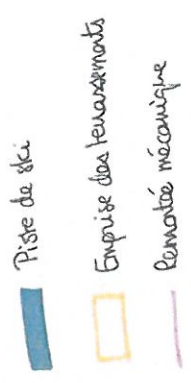 Piste de ski
Emprise des terrassements
Remontée mécanique